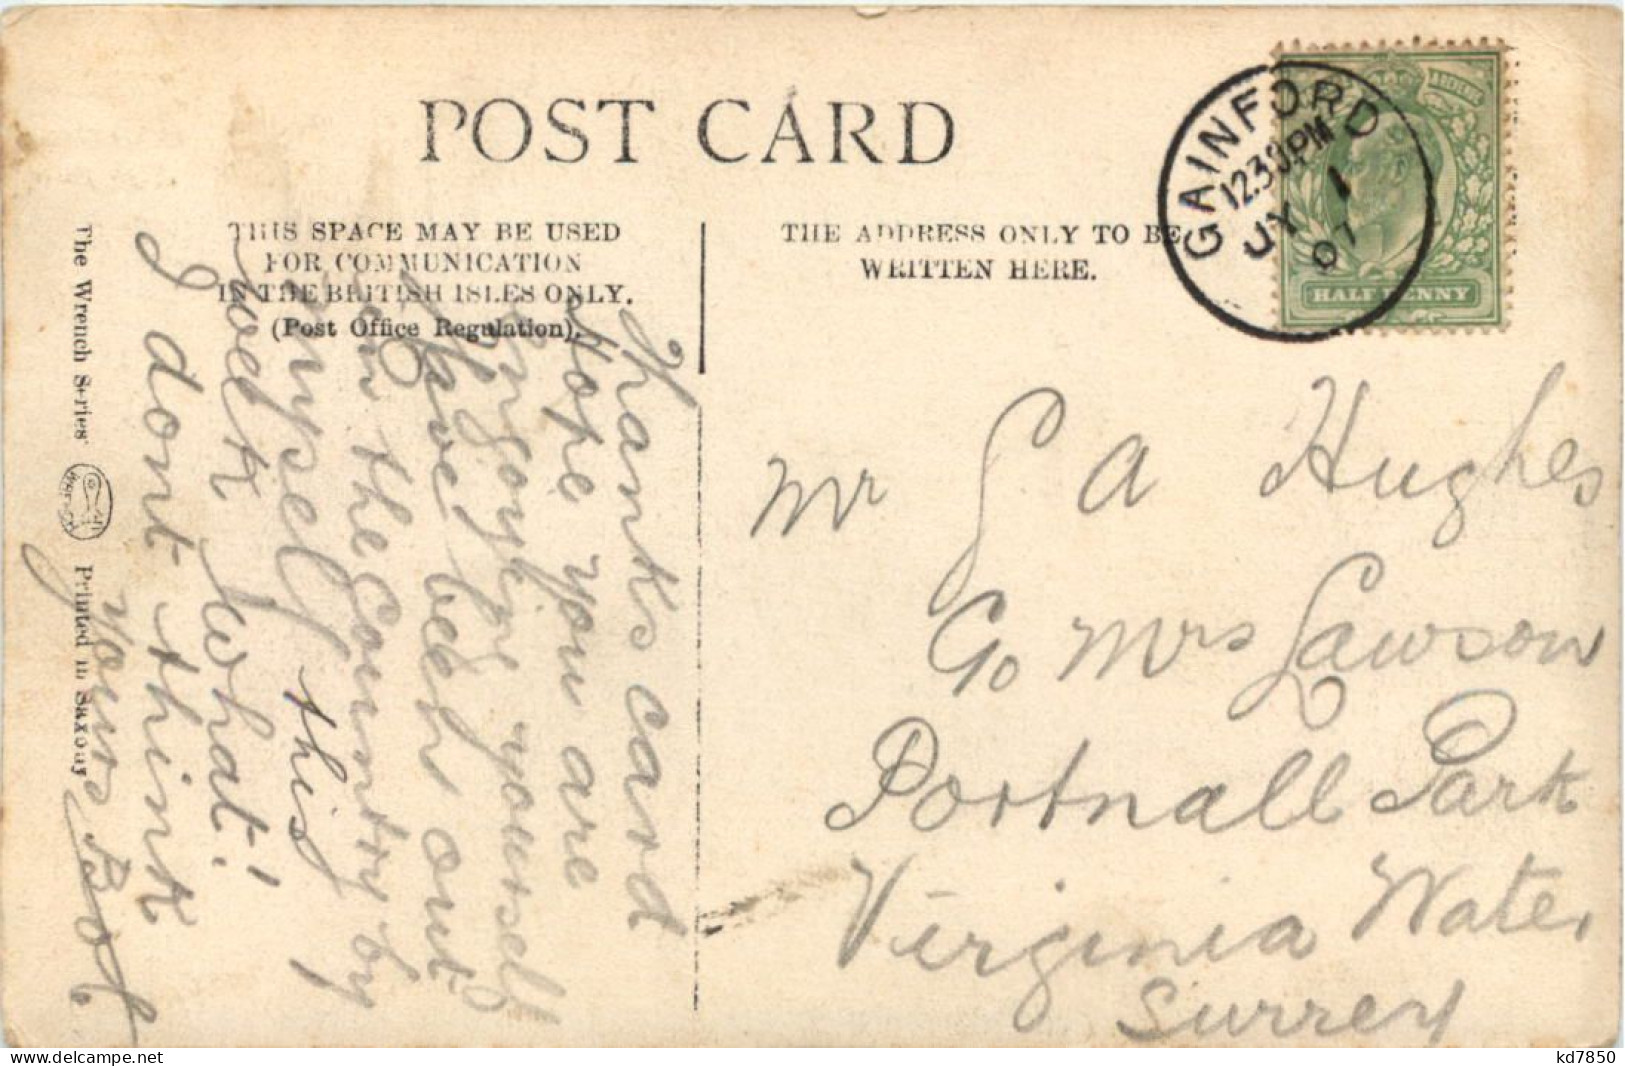 POST CARD
THIS SPACE MAY BE USED
FOR COMMUNICATION
IN THE BRITISH ISLES ONLY.
(Post Office Regulation).
THE ADDRESS ONLY TO BE
WRITTEN HERE.
GAINFORD
12.30PM
JY 1
07
HALFPENNY
The Wrench Series
Printed in Saxony
Thanks card
Hope you are
enjoying yourself
Have been out
in the Country by
myself this
week what!
I dont think
yours Bob
Mr S A Hughes
C/o Mrs Lawson
Portnall Park
Virginia Water
Surrey
www.delcampe.net
kd7850